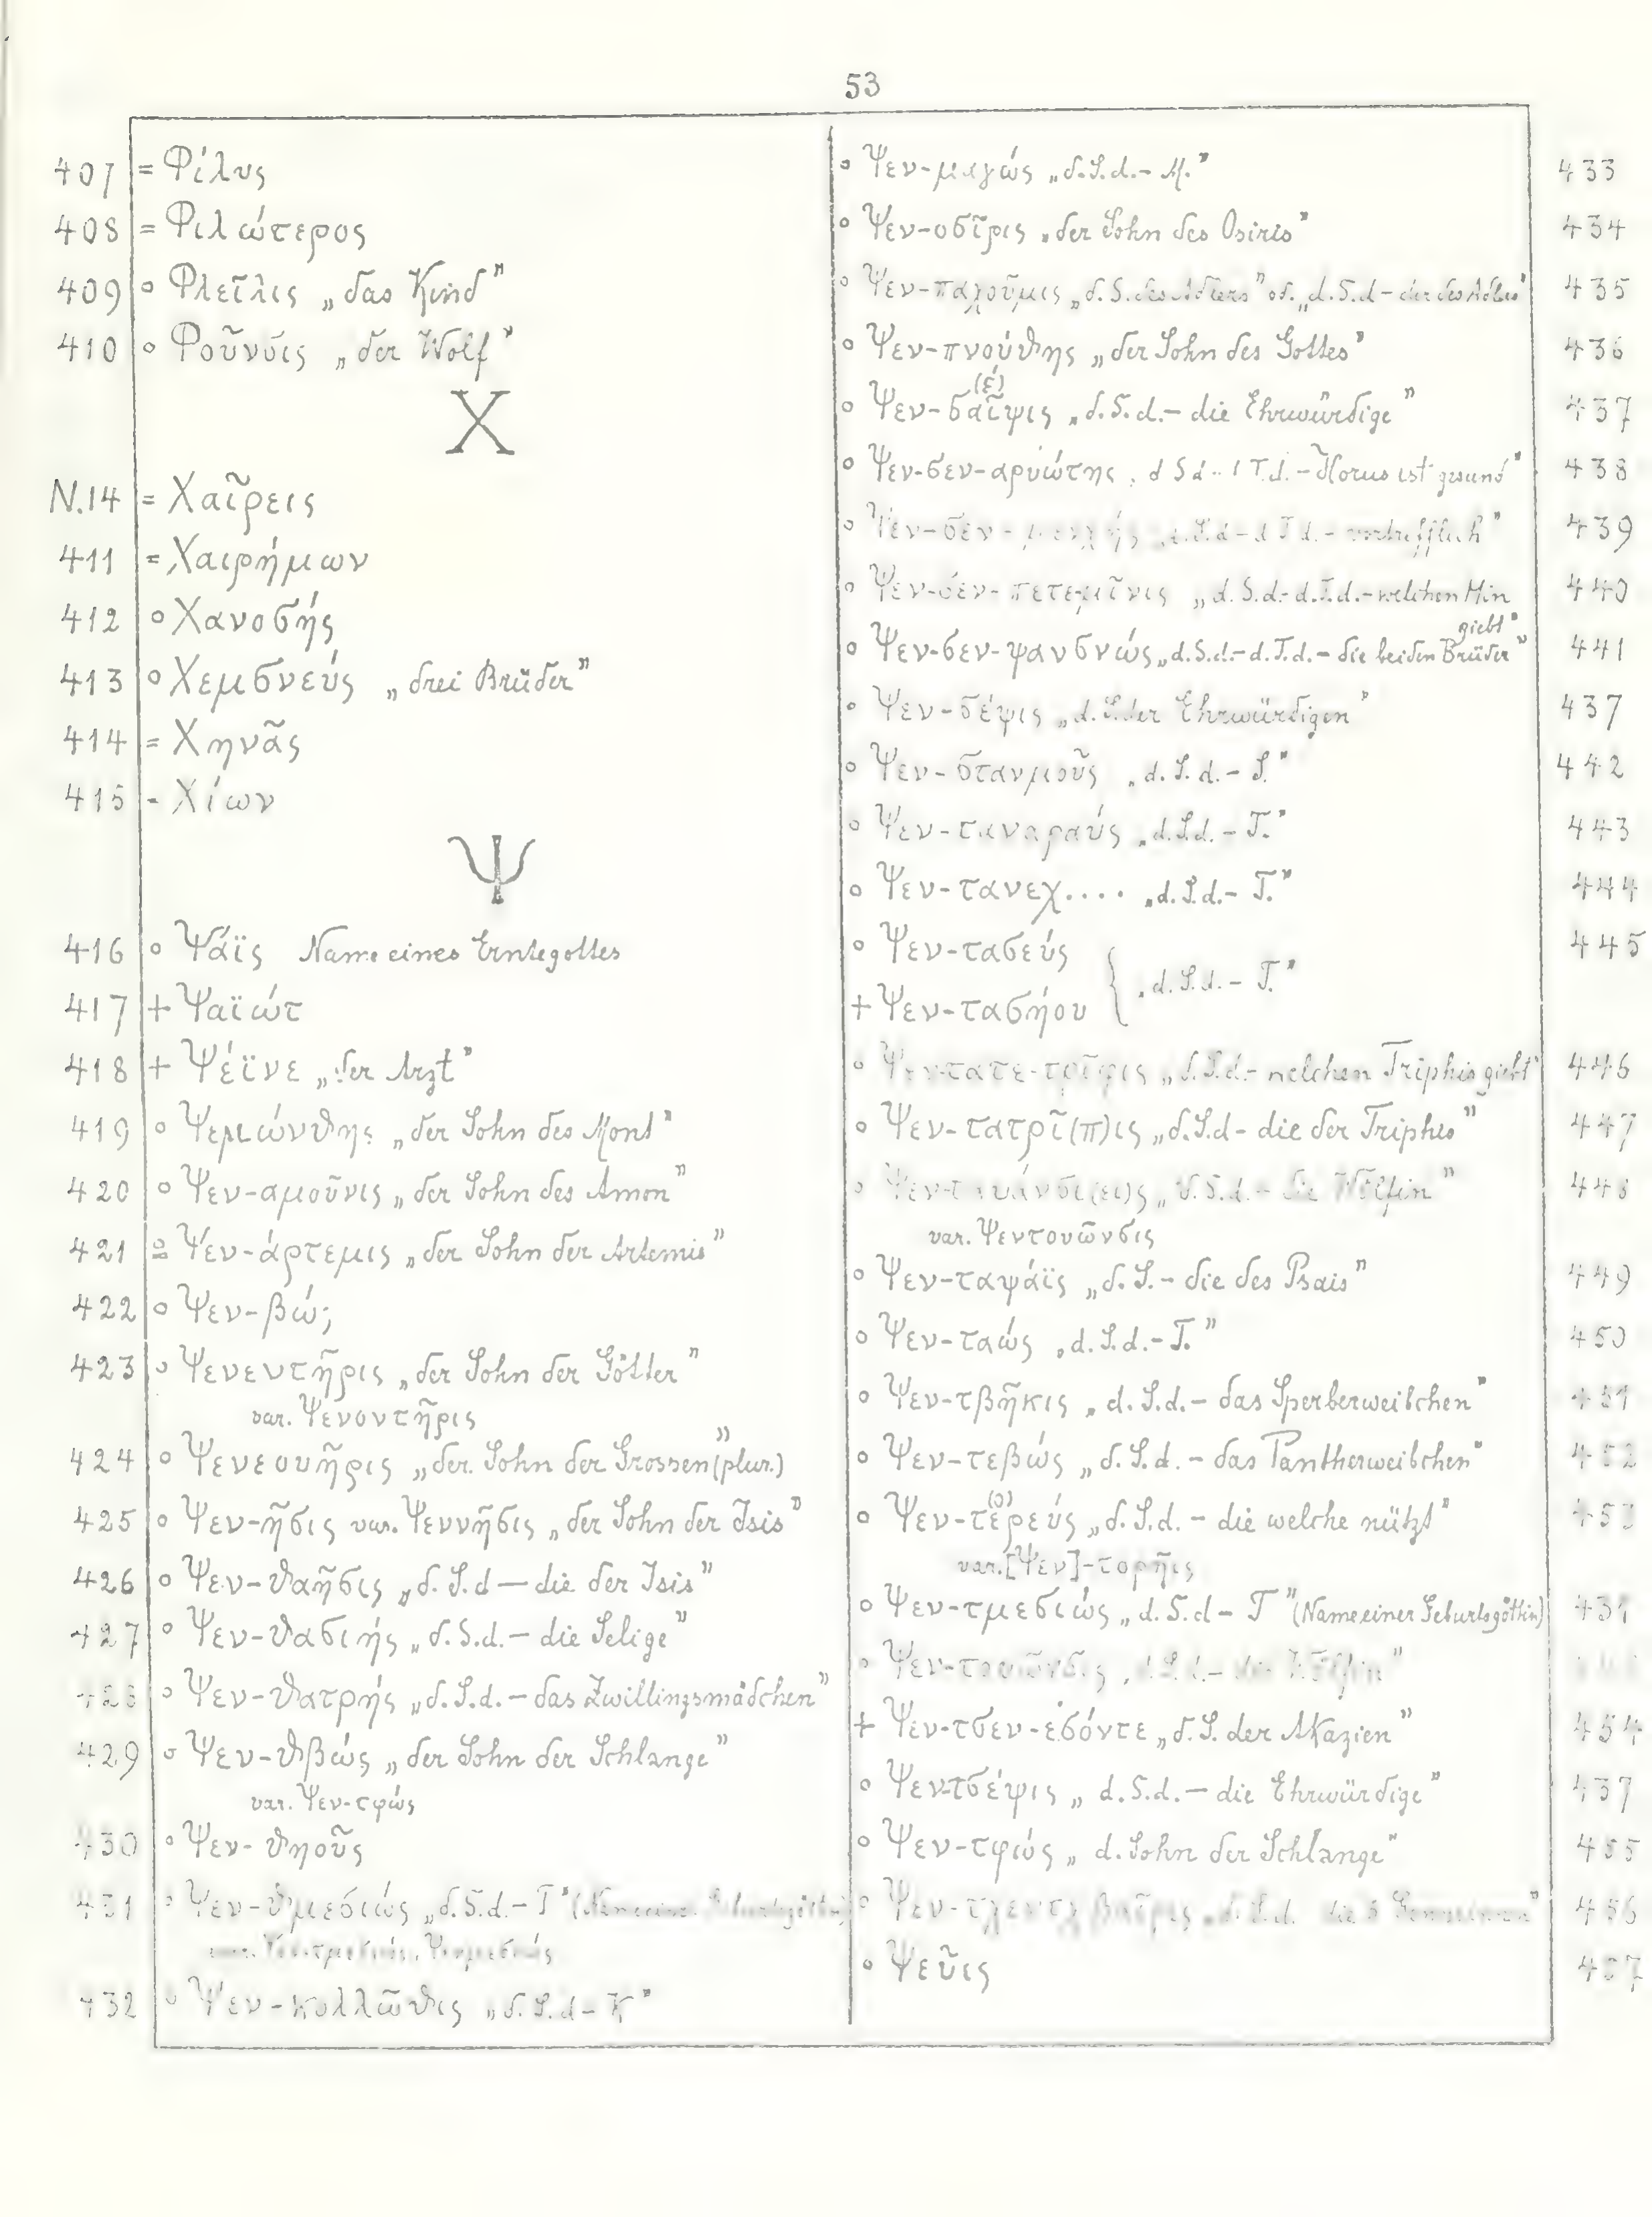 53
407 = Φίλυς
408 = Φιλώτερος
409 ∘ Φλεῖλις „das Kind”
410 ∘ Φοῦνσις „der Wolf”
Χ
N.14 = Χαῖρεις
411 = Χαιρήμων
412 ∘ Χανοσής
413 ∘ Χεμσνεύς „drei Brüder”
414 = Χηνᾶς
415 - Χίων
Ψ
416 ∘ Ψάϊς Name eines Erntegottes
417 + Ψαϊώτ
418 + Ψέϊνε „der Arzt”
419 ∘ Ψεμώνθης „der Sohn des Mont”
420 ∘ Ψεν-αμοῦνις „der Sohn des Amon”
421 Ψεν-άρτεμις „der Sohn der Artemis”
422 ∘ Ψεν-βώ;
423 ∘ Ψενεντῆρις „der Sohn der Götter”
var. Ψενοντῆρις
424 ∘ Ψενεουῆρις „der Sohn der Grossen (plur.)”
425 ∘ Ψεν-ῆσις var. Ψεννῆσις „der Sohn der Isis”
426 ∘ Ψεν-θαῆσις „d. S. d — die der Isis”
427 ∘ Ψεν-θασιής „d. S. d. — die Selige”
428 ∘ Ψεν-θατρής „d. S. d. – das Zwillingsmädchen”
429 ∘ Ψεν-θβώς „der Sohn der Schlange”
var. Ψεν-τφώς
430 ∘ Ψεν-θηοῦς
431 ∘ Ψεν-θμεσιώς „d. S. d. – T”
432 ∘ Ψεν-κολλῶθις „d. S. d – K”
∘ Ψεν-μαγώς „d. S. d. – M.” 433
∘ Ψεν-οσῖρις „der Sohn des Osiris” 434
∘ Ψεν-παχοῦμις „d. S. des Adlers” od. „d. S. d – der des Adlers” 435
∘ Ψεν-πνούθης „der Sohn des Gottes” 436
∘ Ψεν-σαῖψις (έ) „d. S. d. – die Ehrwürdige” 437
∘ Ψεν-σεν-αρυώτης „d S d – d T. d. – Horus ist gesund” 438
∘ Ψεν-σεν- „d. S. d – d T d. – vortrefflich” 439
∘ Ψεν-σεν-πετεμῖνις „d. S. d. – d. T. d. – welchen Min giebt” 440
∘ Ψεν-σεν-ψανσνώς „d. S. d. – d. T. d. – die beiden Brüder” 441
∘ Ψεν-σέψις „d. S. der Ehrwürdigen” 437
∘ Ψεν-στανμοῦς „d. S. d. – S.” 442
∘ Ψεν-ταναραύς „d. S. d. – T.” 443
∘ Ψεν-τανεχ.... „d. S. d. – T.” 444
∘ Ψεν-τασεύς 445
+ Ψεν-τασήου { „d. S. d. – T.”
∘ Ψεν-τατε-τρῖφις „d. S. d. – welchen Triphis giebt” 446
∘ Ψεν-τατρῖ(π)ις „d. S. d – die der Triphis” 447
∘ „d. S. d. – die Wölfin” 448
var. Ψεντουῶνσις
∘ Ψεν-ταψάϊς „d. S. – die des Psais” 449
∘ Ψεν-ταώς „d. S. d. – T.” 450
∘ Ψεν-τβῆκις „d. S. d. – das Sperberweibchen” 451
∘ Ψεν-τεβώς „d. S. d. – das Pantherweibchen” 452
∘ Ψεν-τερεύς (ο) „d. S. d. – die welche nützt” 453
var. [Ψεν]-τορῆις
∘ Ψεν-τμεσιώς „d. S. d – T” (Name einer Geburtsgöttin) 431
∘ Ψεν-τουῶνσις „d. S. d. – die Wölfin”
+ Ψεν-τσεν-εσόντε „d. S. der Akazien” 454
∘ Ψεντσέψις „d. S. d. — die Ehrwürdige” 437
∘ Ψεν-τφώς „d. Sohn der Schlange” 455
∘ Ψεν- „d. S. d. 456
∘ Ψεῦις 457